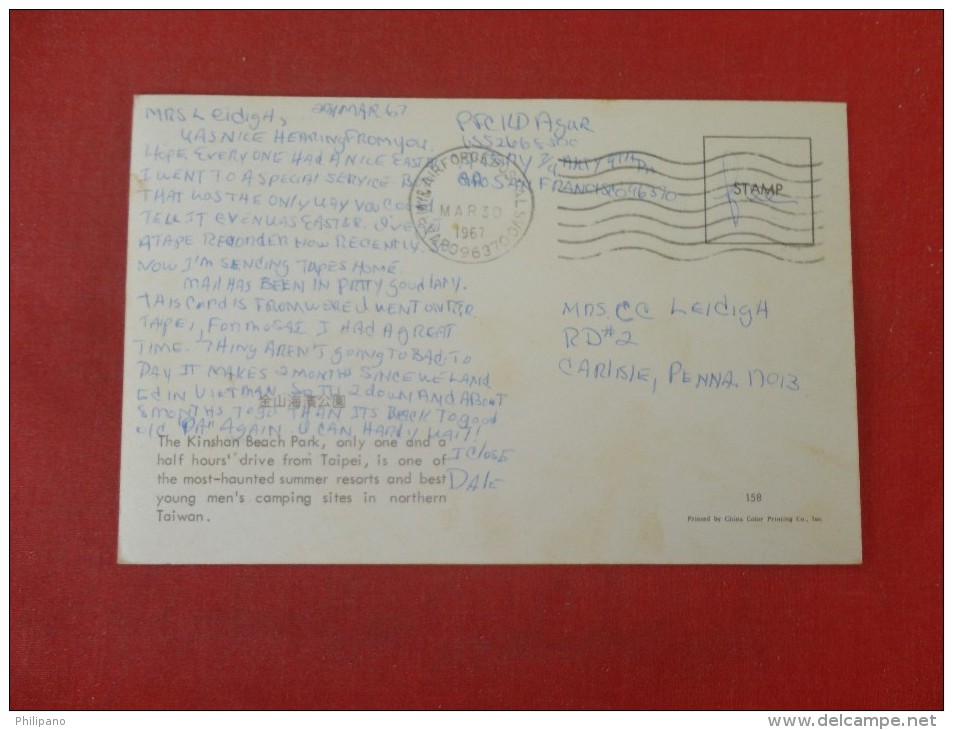 MRS Leidigh, 29 MAR 67
WAS NICE HEARING FROM YOU.
HOPE EVERYONE HAD A NICE EASTER
I WENT TO A SPECIAL SERVICE
THAT WAS THE ONLY WAY YOU COULD
TELL IT EVEN WAS EASTER. I'VE
A TAPE RECORDER NOW RECENTLY.
NOW I'M SENDING TAPES HOME.
MAIL HAS BEEN IN PRTTY good lATLY.
THIS CARD IS FROM WERE I WENT ON
TAIPEI, FORMOSA I HAD A GREAT
TIME. THING AREN'T going TO BAD. TO
DAY IT MAKES 2 MONTHS SINCE WE LAND
ED IN VIETMAN. 2 DOWN AND ABOUT
8 MONTHS TO GO THAN ITS BACK TO good
old "PA" AGAIN. U CAN HARDLY WAIT!
I ClOSE
DAlE
金山海濱公園
The Kinshan Beach Park, only one and a
half hours' drive from Taipei, is one of
the most-haunted summer resorts and best
young men's camping sites in northern
Taiwan.
PFC H D Agar
SAN FRANCISCO 96370
ARMY & AIR FORCE POSTAL SERVICE
MAR 30
1967
APO 96370
STAMP
MRS. CC LEIdigH
RD#2
CARlISlE, PENNA. 17013
158
Printed by China Color Printing Co., Inc.
Philipano
www.delcampe.net